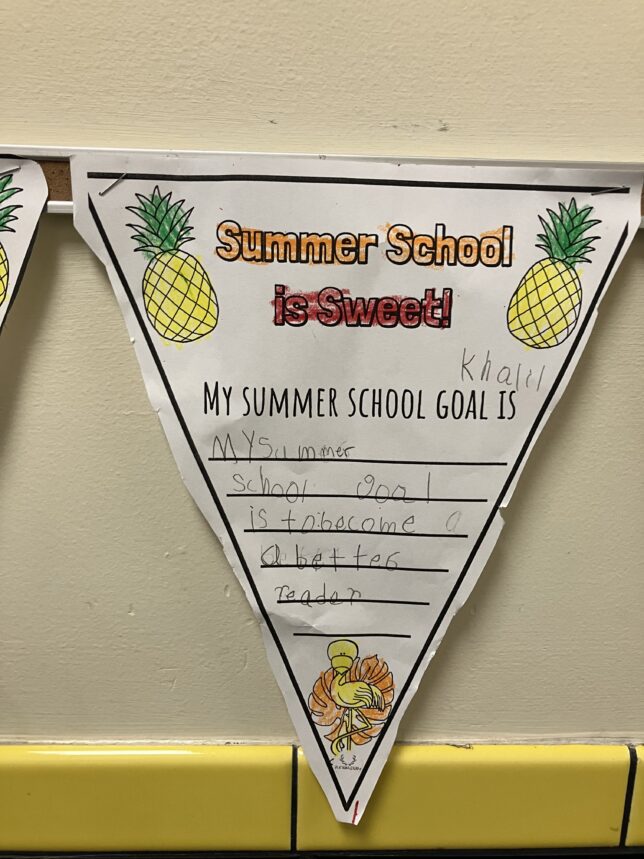 Summer School
is Sweet!
Khalil
MY SUMMER SCHOOL GOAL IS
MY Summer
school goal
is to become a
a better
reader